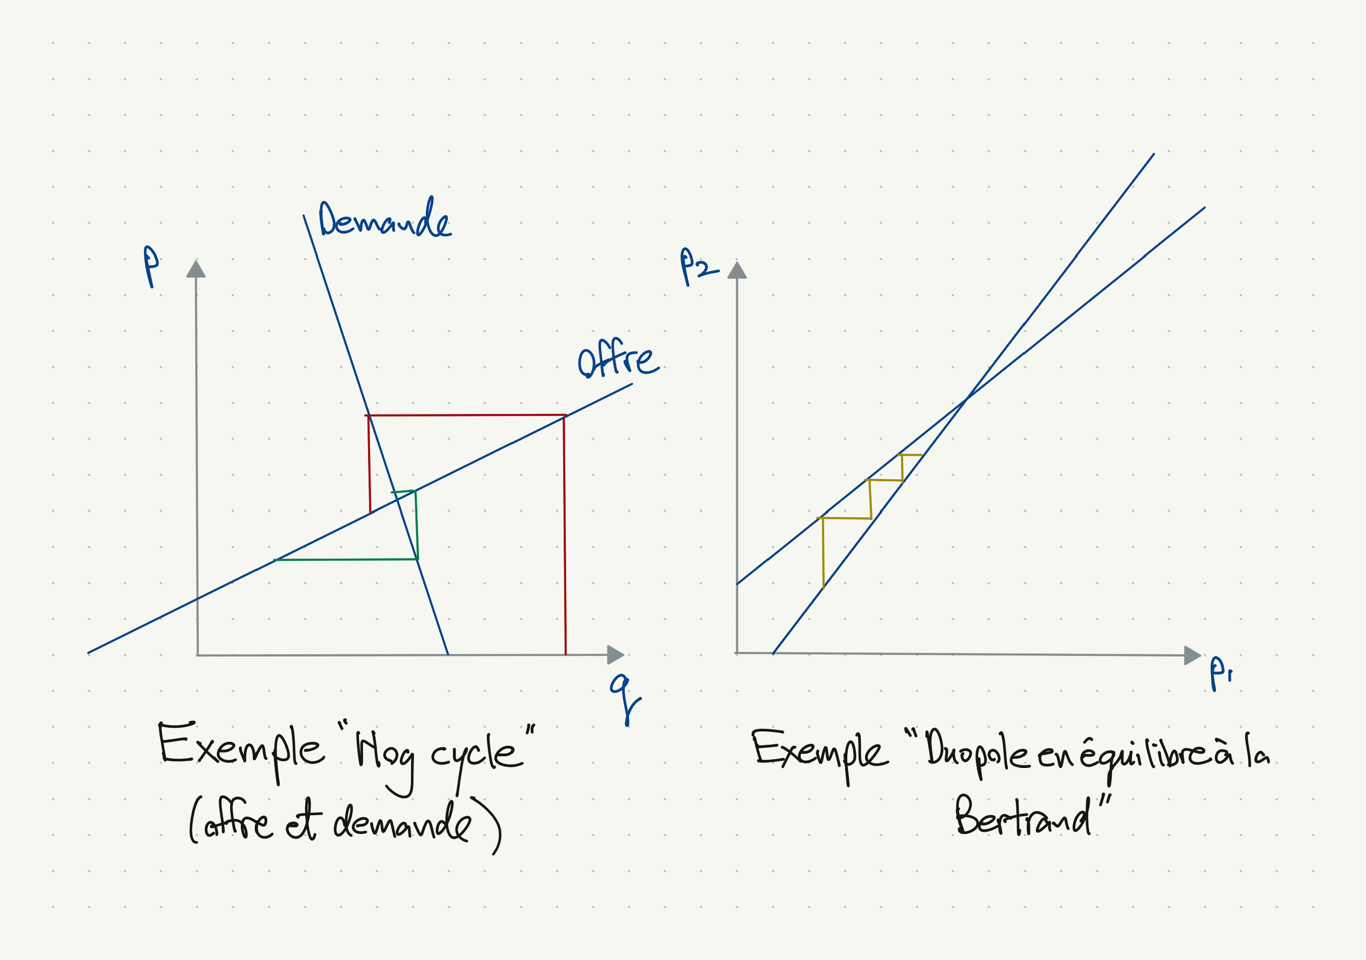 Demande
P
Offre
q
Exemple "Hog cycle"
(offre et demande)
P2
P1
Exemple "Duopole en équilibre à la
Bertrand"